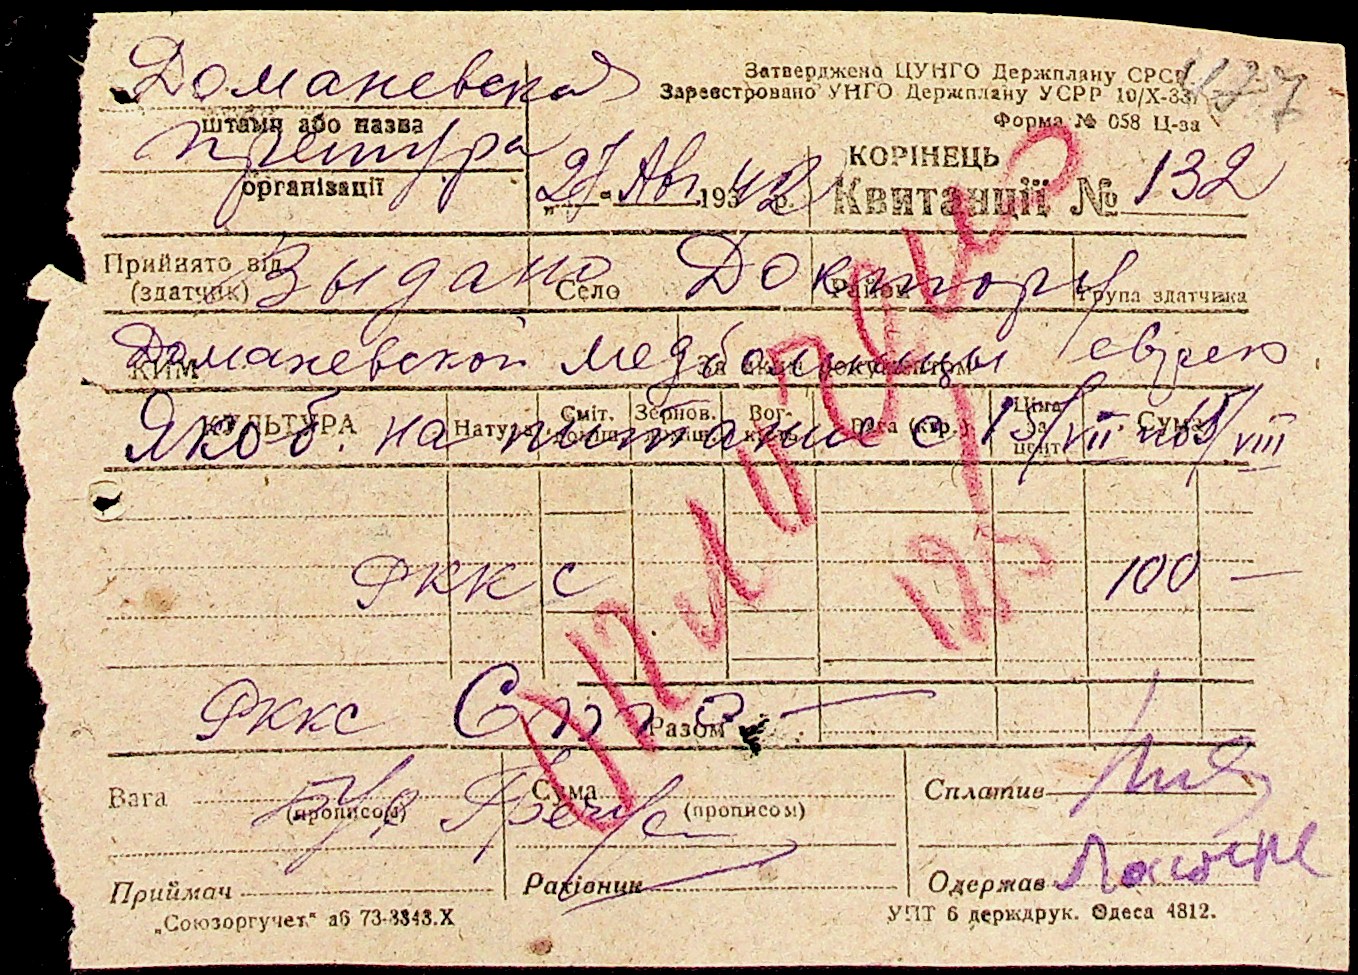 Доманевская
штамп або назва
претура
організації
Затверджено ЦУНГО Держплану СРСР
Зареєстровано УНГО Держплану УСРР 10/X-33
Форма № 058 Ц-за
"27" Авг 1942 р.
КОРІНЕЦЬ
Квитанції № 132
Прийнято від (здатчик)
Село
Район
Група здатчика
Выдано Доктору
КИМ
За яким документом
Доманевской медбольницы еврею
КУЛЬТУРА Натура Сміт. домiш. Зернов. домiш. Вог-кість Вага (кгр.) Ціна за цент. Сума
Якоб. на питание с 15/VII по 15/VIII
РККС 100 —
РККС Сто —
Разом
Оплочено
Вага (прописом)
Сума (прописом)
Сплатив
Приймач
Рахівник
Одержав
„Союзоргучет" аб 73-3343.X
УПТ 6 держдрук. Одеса 4812.